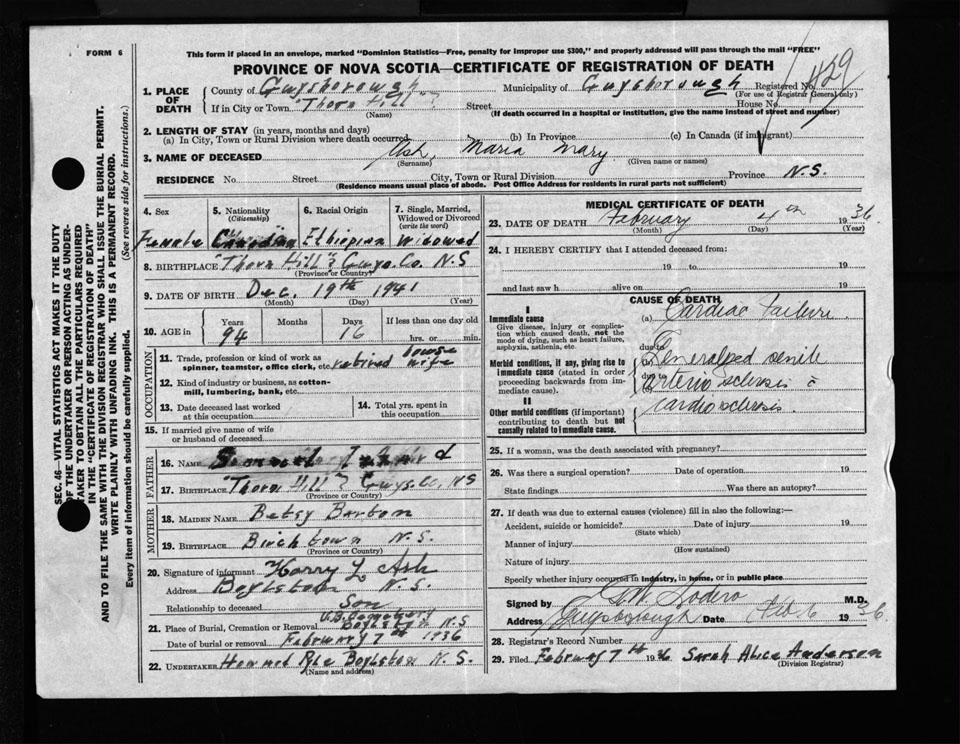 FORM 6
This form if placed in an envelope, marked "Dominion Statistics—Free, penalty for improper use $300," and properly addressed will pass through the mail "FREE"
PROVINCE OF NOVA SCOTIA—CERTIFICATE OF REGISTRATION OF DEATH
1. PLACE OF DEATH
County of Guysborough Municipality of Guysborough Registered No. 429
(For use of Registrar General only)
If in City or Town "Thorn Hill" Street House No.
(Name) (If death occurred in a hospital or institution, give the name instead of street and number)
2. LENGTH OF STAY (in years, months and days)
(a) In City, Town or Rural Division where death occurred (b) In Province (c) In Canada (if immigrant)
3. NAME OF DECEASED Ash, Maria Mary
(Surname) (Given name or names)
RESIDENCE No. Street City, Town or Rural Division Province N.S.
(Residence means usual place of abode. Post Office Address for residents in rural parts not sufficient)
SEC. 46—VITAL STATISTICS ACT MAKES IT THE DUTY
OF THE UNDERTAKER OR PERSON ACTING AS UNDER-
TAKER TO OBTAIN ALL THE PARTICULARS REQUIRED
IN THE "CERTIFICATE OF REGISTRATION OF DEATH"
AND TO FILE THE SAME WITH THE DIVISION REGISTRAR WHO SHALL ISSUE THE BURIAL PERMIT.
WRITE PLAINLY WITH UNFADING INK. THIS IS A PERMANENT RECORD.
Every item of information should be carefully supplied. (See reverse side for instructions.)
4. Sex 5. Nationality (Citizenship) 6. Racial Origin 7. Single, Married, Widowed or Divorced (write the word)
Female Canadian Ethiopian Widowed
8. BIRTHPLACE "Thorn Hill" Guys. Co. N.S
(Province or Country)
9. DATE OF BIRTH Dec. 19th 1941
(Month) (Day) (Year)
10. AGE in Years Months Days If less than one day old
94 16 hrs. or min.
OCCUPATION
11. Trade, profession or kind of work as spinner, teamster, office clerk, etc. retired house wife
12. Kind of industry or business, as cotton-mill, lumbering, bank, etc.
13. Date deceased last worked at this occupation 14. Total yrs. spent in this occupation
15. If married give name of wife or husband of deceased
FATHER
16. NAME
17. BIRTHPLACE "Thorn Hill" Guys. Co. N.S
(Province or Country)
MOTHER
18. MAIDEN NAME Betsy Barton
19. BIRTHPLACE Birchtown N.S.
(Province or Country)
20. Signature of informant Harry L Ash
Address Boylston N.S.
Relationship to deceased Son
21. Place of Burial, Cremation or Removal Boylston N.S
Date of burial or removal February 7th 1936
22. UNDERTAKER Boylston N.S.
(Name and address)
MEDICAL CERTIFICATE OF DEATH
23. DATE OF DEATH February 4th 1936
(Month) (Day) (Year)
24. I HEREBY CERTIFY that I attended deceased from:
19 to 19
and last saw h alive on 19
CAUSE OF DEATH
I
Immediate cause (a) Cardiac Failure
Give disease, injury or complication which caused death, not the mode of dying, such as heart failure, asphyxia, asthenia, etc.
due to
Morbid conditions, if any, giving rise to immediate cause (stated in order proceeding backwards from immediate cause).
(b) Generalized senile
due to
arterio sclerosis
cardiosclerosis.
II
Other morbid conditions (if important) contributing to death but not causally related to immediate cause.
25. If a woman, was the death associated with pregnancy?
26. Was there a surgical operation? Date of operation 19
State findings Was there an autopsy?
27. If death was due to external causes (violence) fill in also the following:—
Accident, suicide or homicide? Date of injury 19
(State which)
Manner of injury
(How sustained)
Nature of injury
Specify whether injury occurred in industry, in home, or in public place
Signed by M.D.
Address Guysborough Date Feb 6 1936.
28. Registrar's Record Number
29. Filed February 7th 1936 Sarah Alice Anderson
(Division Registrar)